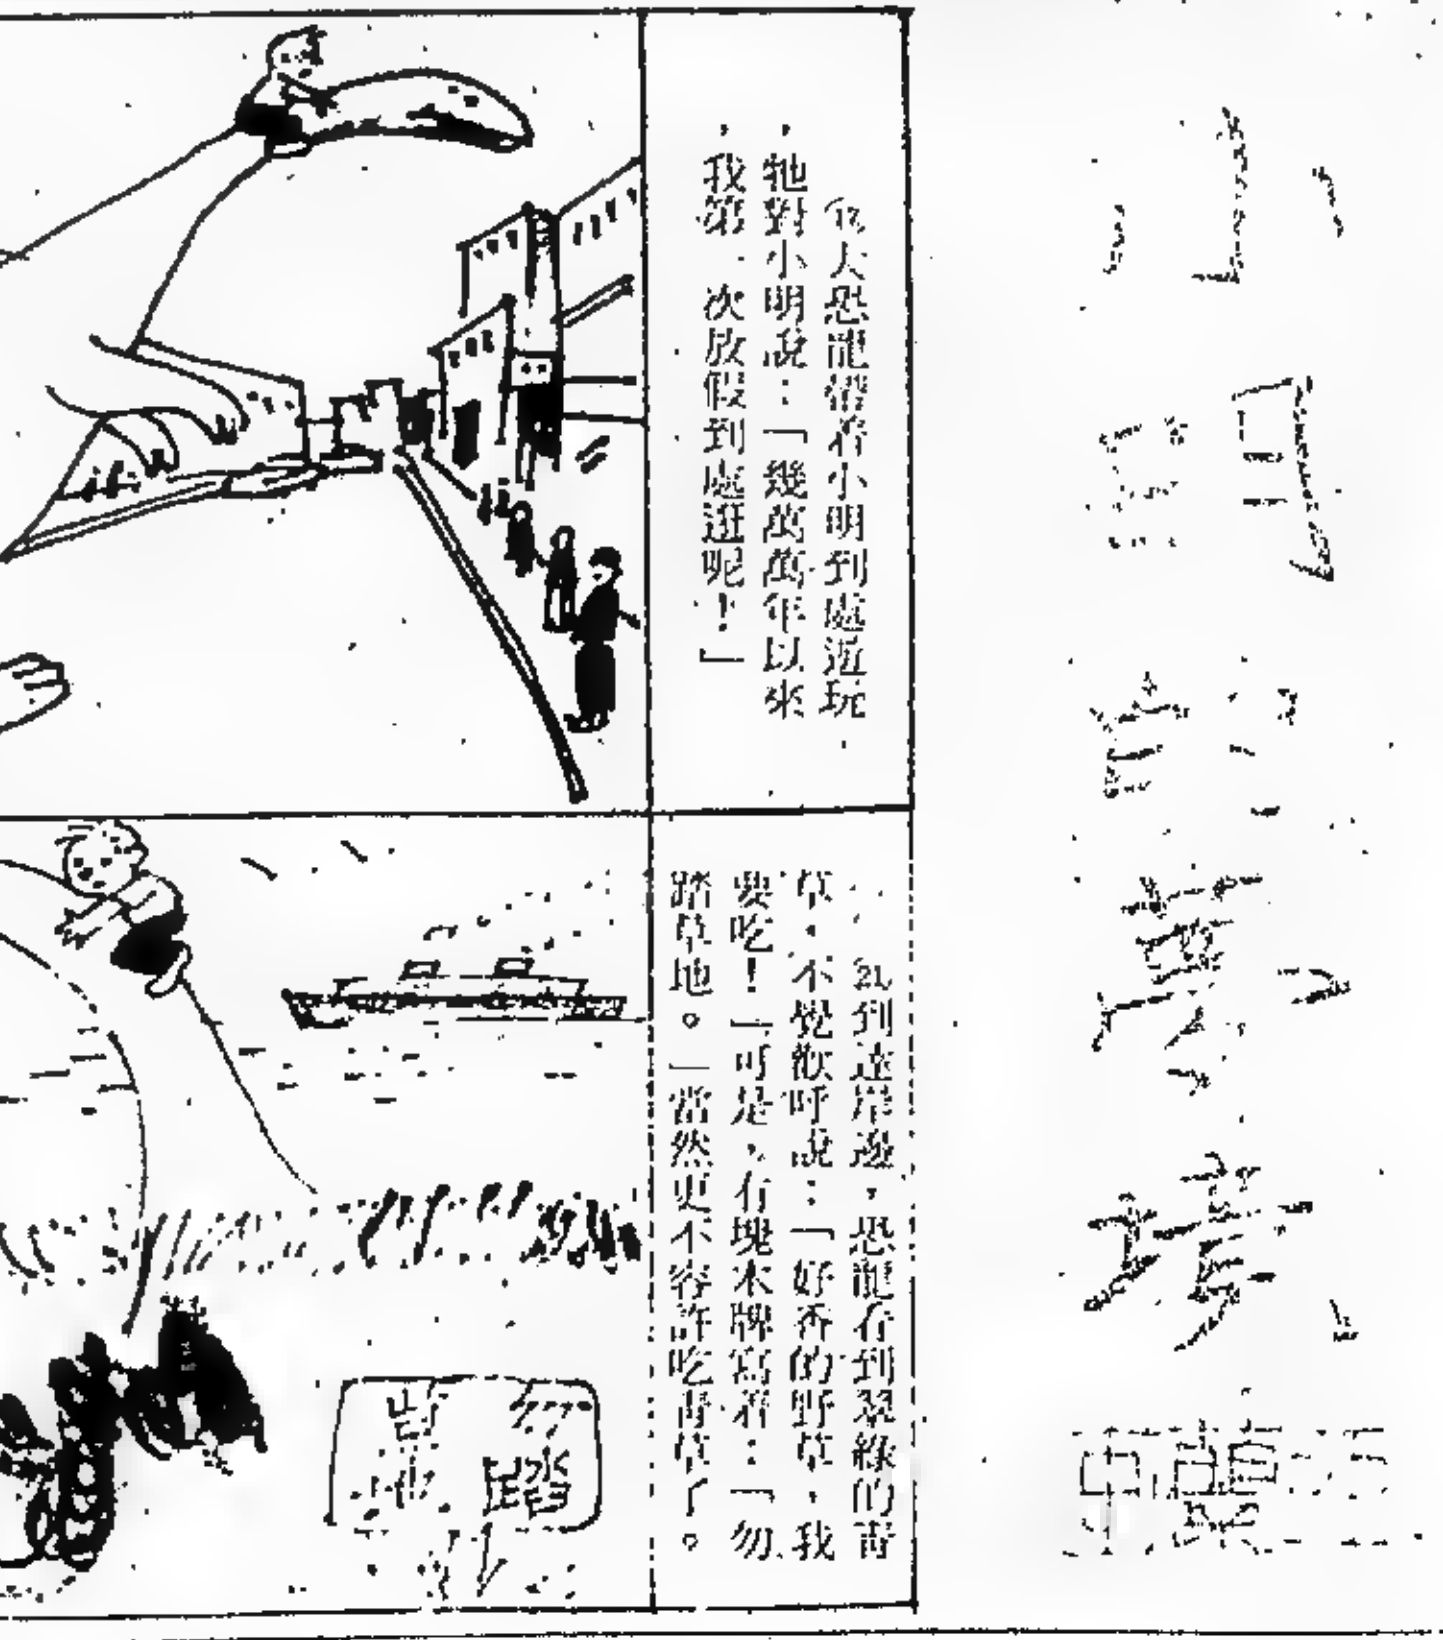 小明
大恐龍帶着小明到處遊玩
,牠對小明說:「幾萬萬年以來
,我第一次放假到處逛呢!」
21到達岸邊,恐龍看到翠綠的青
草,不覺歡呼說:「好香的野草,我
要吃!」可是,有塊木牌寫着:「勿
踏草地。」當然更不容許吃青草了。
勿踏
草地